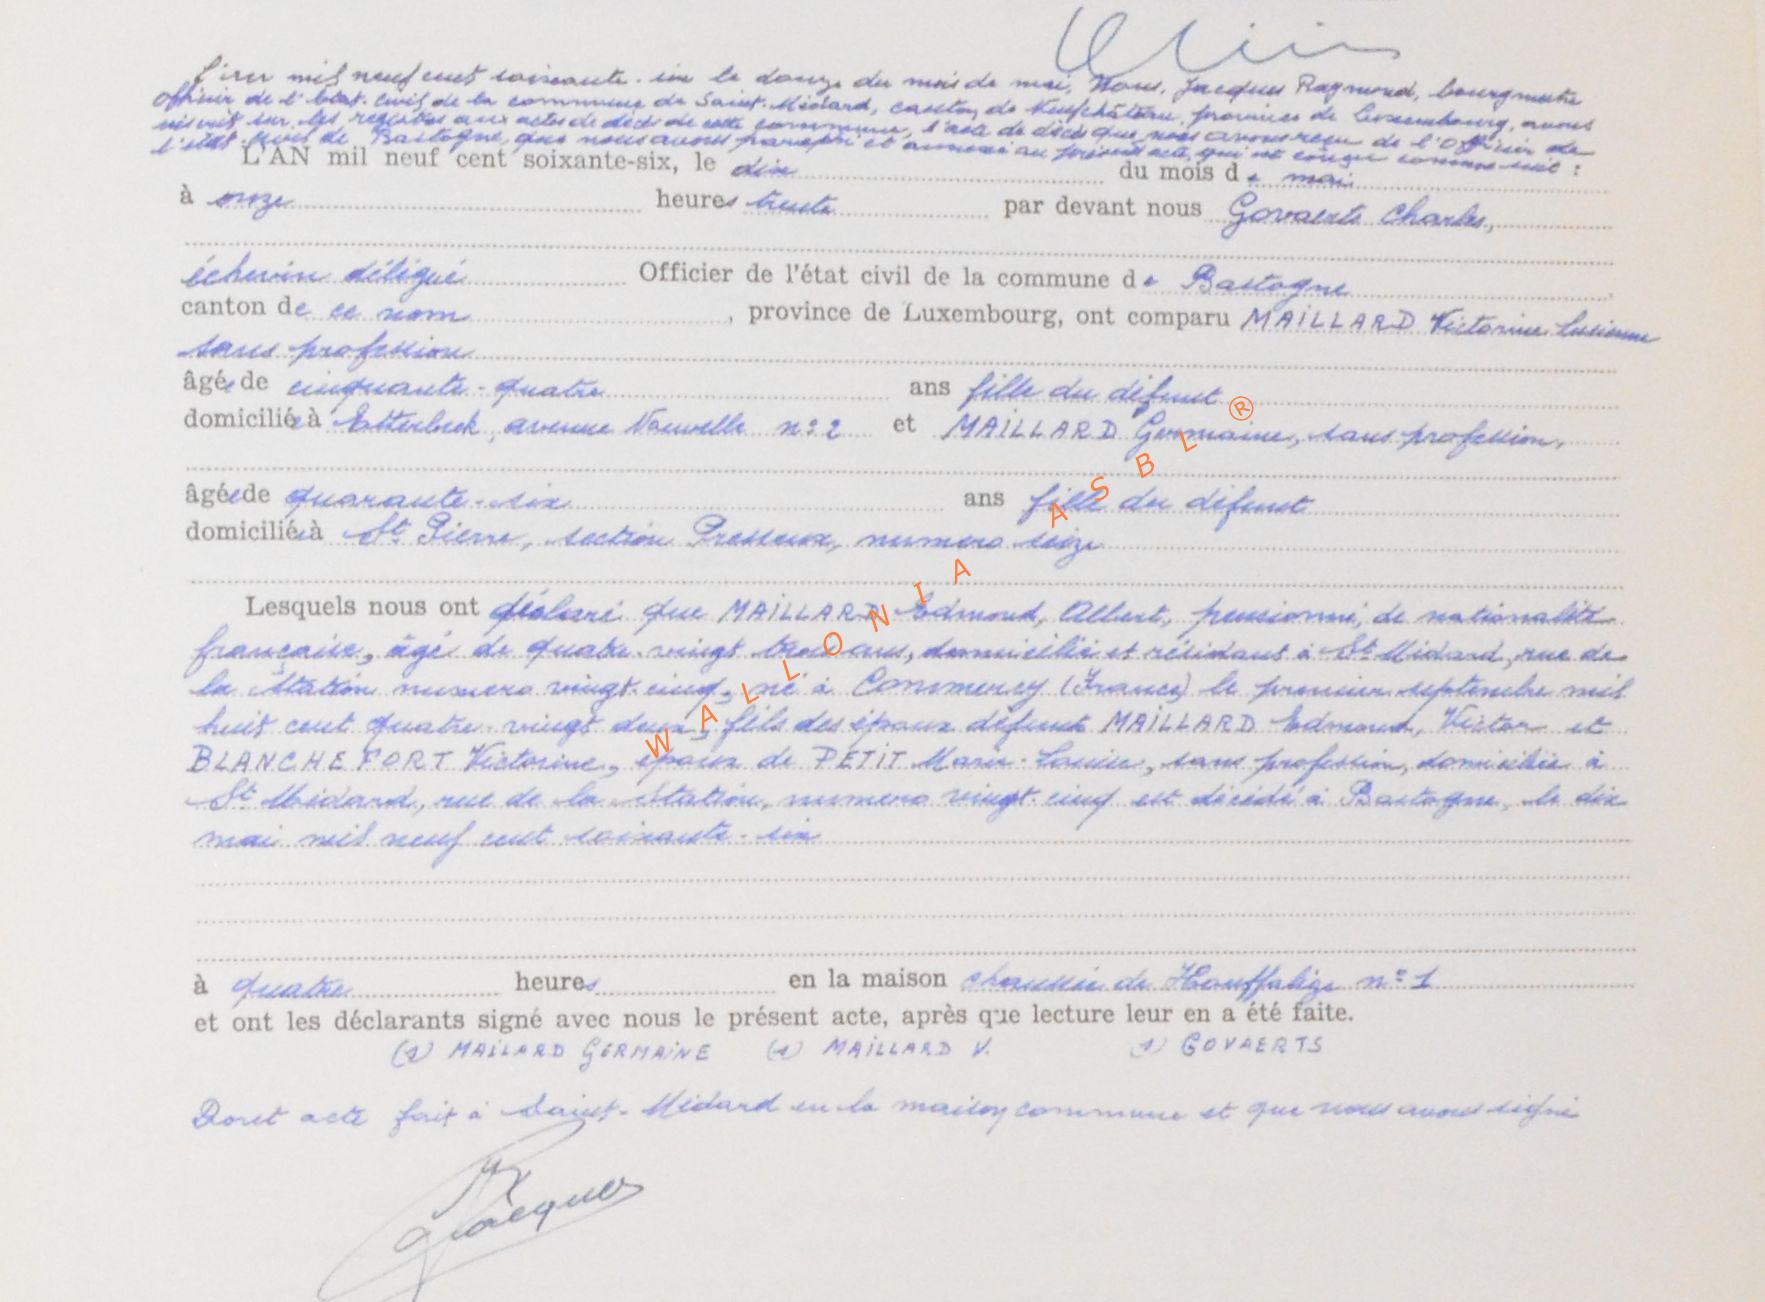 L'an mil neuf cent soixante-six le douze du mois de mai, Nous, Jacques Raymond, bourgmestre
officier de l'état-civil de la commune de Saint-Médard, canton de Neufchâteau, province de Luxembourg, avons
inscrit sur les registres aux actes de décès de cette commune, l'acte de décès que nous avons reçu de l'Officier de
l'état civil de Bastogne, que nous avons paraphé et annexé au présent acte, qui est conçu comme suit :
L'AN mil neuf cent soixante-six, le dix du mois de mai
à onze heures trente par devant nous Govaerts Charles,
échevin délégué Officier de l'état civil de la commune de Bastogne
canton de ce nom, province de Luxembourg, ont comparu MAILLARD Victorine Lucienne
sans profession
âgée de cinquante-quatre ans fille du défunt
domiciliée à Etterbeek, avenue Nouvelle n° 2 et MAILLARD Germaine, sans profession,
âgée de quarante-six ans fille du défunt
domiciliée à St Pierre, section Presseux, numéro seize
Lesquels nous ont déclaré que MAILLARD Edmond, Albert, pensionné, de nationalité
française, âgé de quatre-vingt trois ans, domicilié et résidant à St Médard, rue de
la Station numéro vingt-cinq, né à Commercy (France) le premier septembre mil
huit cent quatre-vingt deux, fils des époux défunt MAILLARD Edmond, Victor et
BLANCHEFORT Victorine, époux de PETIT Marie-Louise, sans profession, domiciliée à
St Médard, rue de la Station, numéro vingt-cinq est décédé à Bastogne, le dix
mai mil neuf cent soixante-six
à quatre heures en la maison chaussée de Houffalize n° 1
et ont les déclarants signé avec nous le présent acte, après que lecture leur en a été faite.
(s) MAILLARD GERMAINE (s) MAILLARD V. (s) GOVAERTS
Dont acte fait à Saint-Médard en la maison commune et que nous avons signé
Jacques
WALLONIA ASBL ®